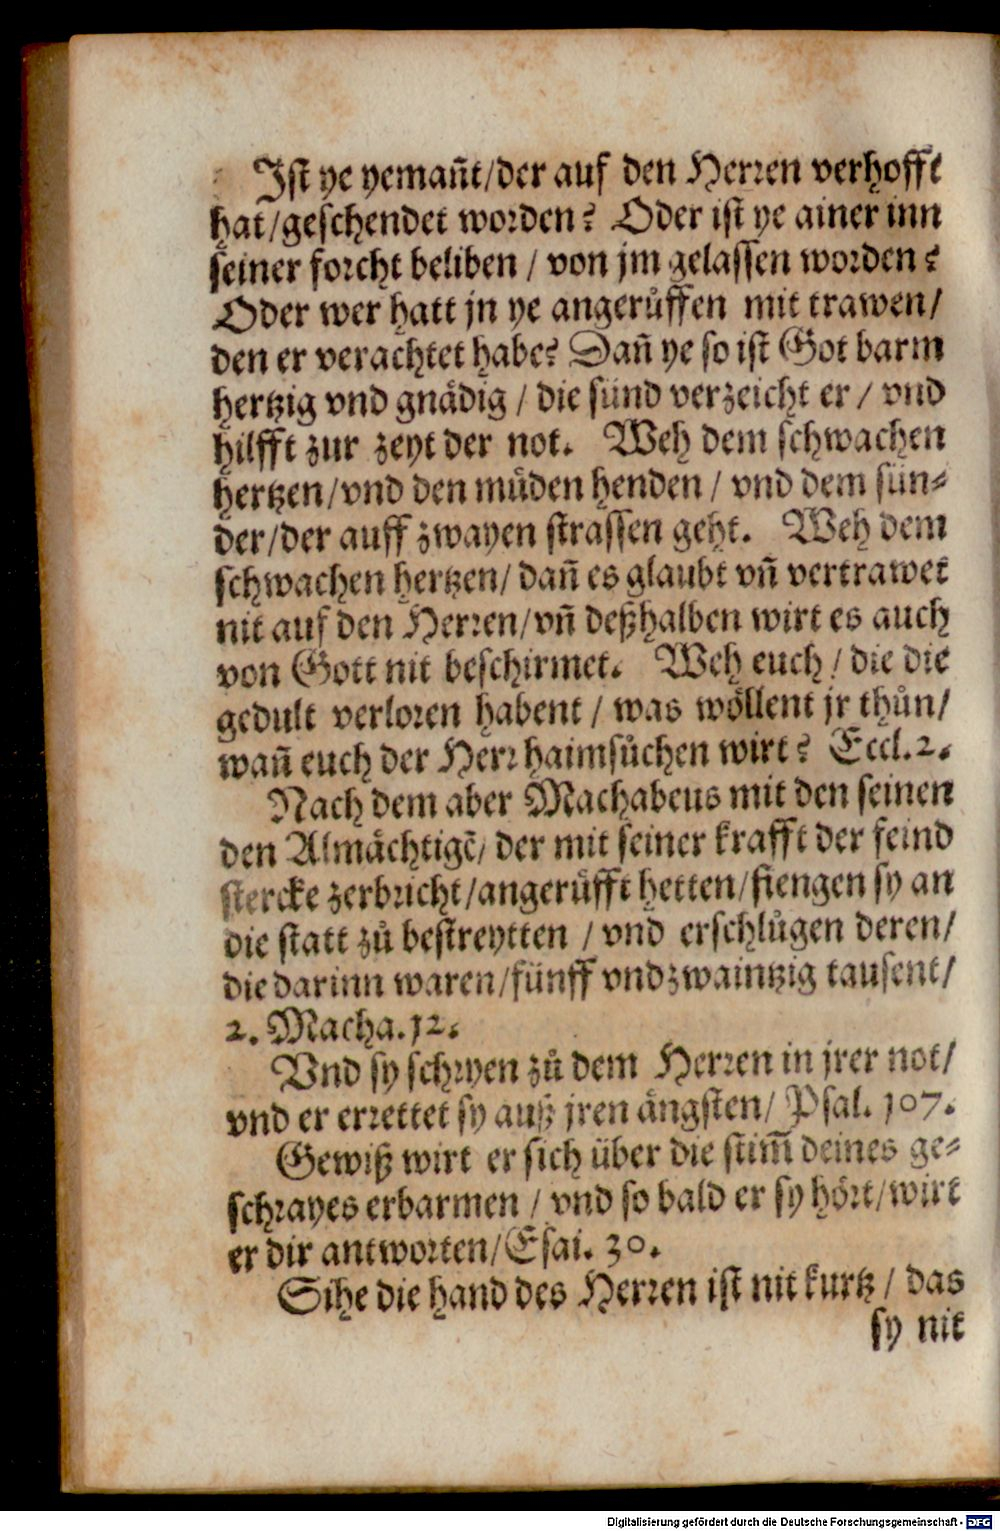 Iſt ye yemañt/der auf den Herꝛen verhofft
hat/geſchendet worden? Oder iſt ye ainer inn
ſeiner forcht beliben / von jm gelaſſen worden?
Oder wer hatt jn ye angerůffen mit trawen/
den er verachtet habe? Dañ ye ſo iſt Got barm
hertzig vnd gnådig / die ſünd verzeicht er / vnd
hilfft zur zeyt der not. Weh dem ſchwachen
hertzen/vnd den můden henden / vnd dem ſün⸗
der/der auff zwayen ſtraſſen geht. Weh dem
ſchwachen hertzen/ dañ es glaubt vñ vertrawet
nit auf den Herꝛen/vñ deßhalben wirt es auch
von Gott nit beſchirmet. Weh euch / die die
gedult verloꝛen habent / was wöllent jr thůn/
wañ euch der Herꝛ haimſůchen wirt? Eccl.2.
Nach dem aber Machabeus mit den ſeinen
den Almåchtigē/ der mit ſeiner krafft der feind
ſtercke zerbꝛicht/angerůfft hetten/fiengen ſy an
die ſtatt zů beſtreytten / vnd erſchlůgen deren/
die darinn waren/fünff vnd zwaintzig tauſent/
2. Macha.12.
Vnd ſy ſchꝛyen zů dem Herꝛen in jrer not/
vnd er erꝛettet ſy auß jren ångſten/ Pſal. 107.
Gewiß wirt er ſich über die ſtim̃ deines ge⸗
ſchꝛayes erbarmen / vnd ſo bald er ſy höꝛt/wirt
er dir antwoꝛten/Eſai. 30.
Sihe die hand des Herꝛen iſt nit kurtz / das
ſy nit
Digitalisierung gefördert durch die Deutsche Forschungsgemeinschaft - DFG